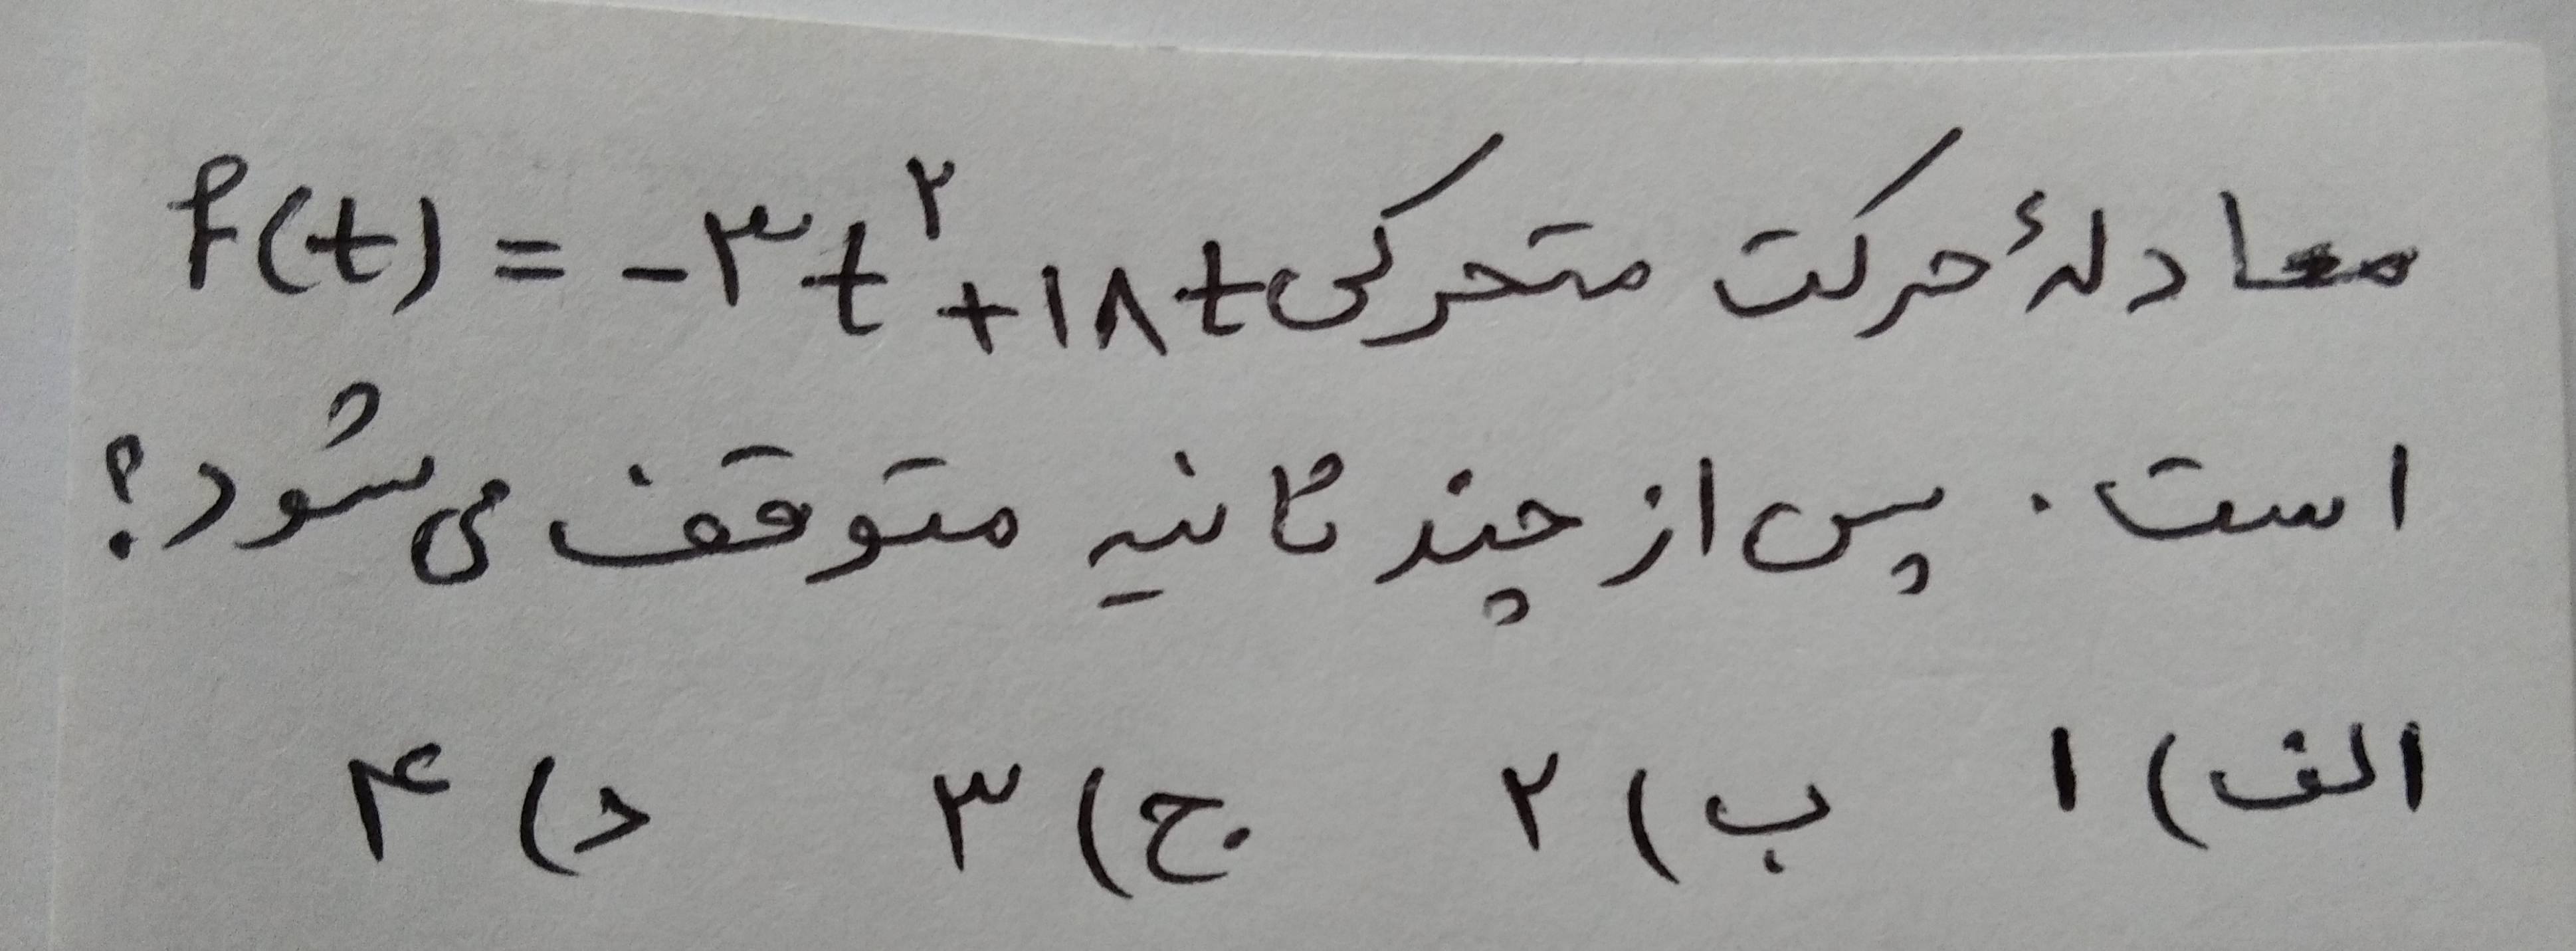 معادلهٔ حرکت متحرکی f(t) = -۳t^۲ + ۱۸t
است. پس از چند ثانیه متوقف می شود؟
الف) ۱ ب) ۲ ج) ۳ د) ۴